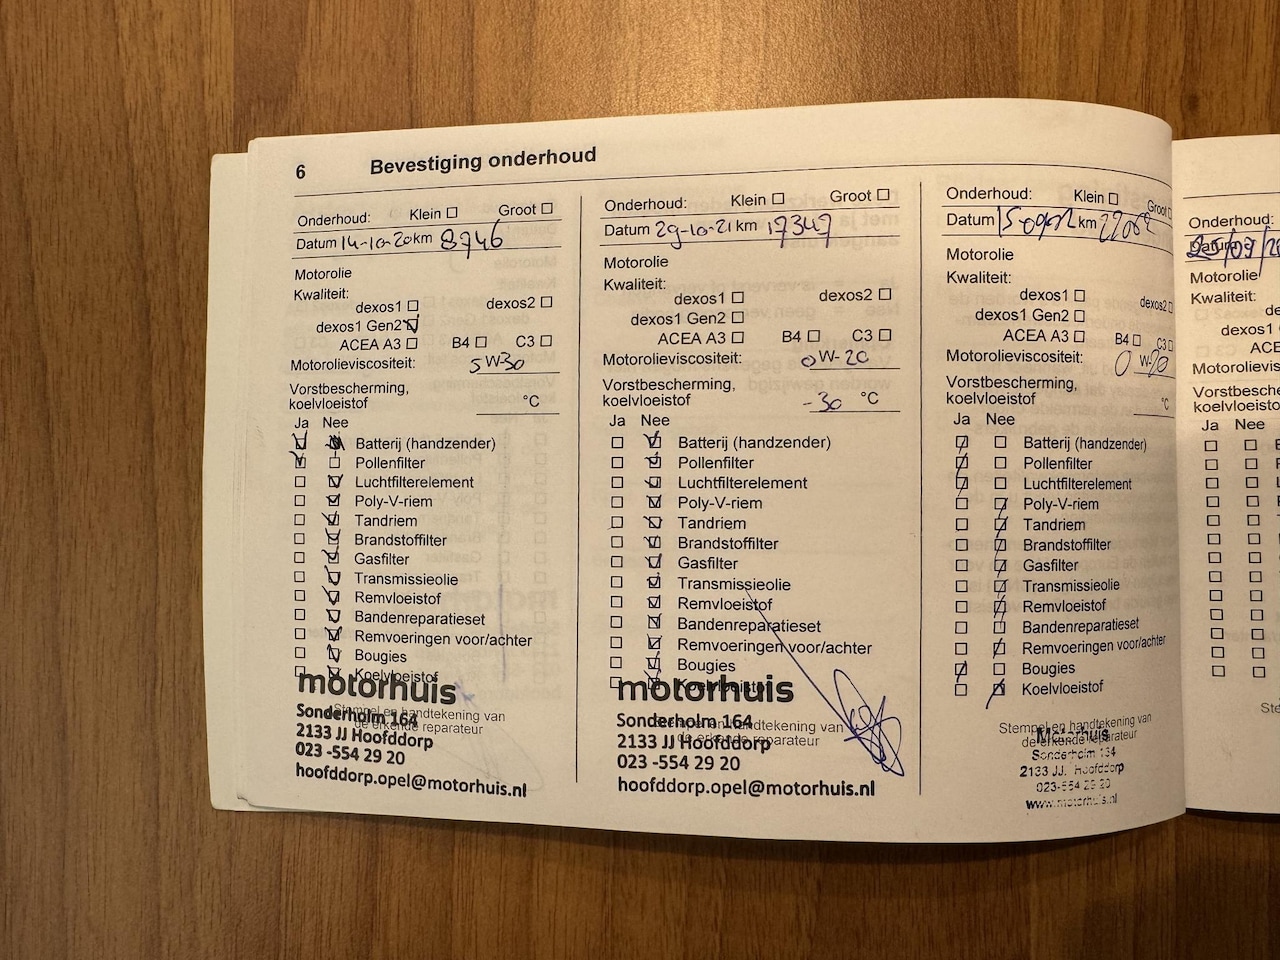 6 Bevestiging onderhoud
Onderhoud: Klein ☐ Groot ☐
Datum 14-10-20 km 8746
Motorolie
Kwaliteit:
dexos1 ☐ dexos2 ☐
dexos1 Gen2 ☑
ACEA A3 ☐ B4 ☐ C3 ☐
Motorolieviscositeit: 5W-30
Vorstbescherming,
koelvloeistof °C
Ja Nee
Batterij (handzender)
Pollenfilter
Luchtfilterelement
Poly-V-riem
Tandriem
Brandstoffilter
Gasfilter
Transmissieolie
Remvloeistof
Bandenreparatieset
Remvoeringen voor/achter
Bougies
Koelvloeistof
motorhuis
Stempel en handtekening van
de erkende reparateur
Sonderholm 164
2133 JJ Hoofddorp
023 -554 29 20
hoofddorp.opel@motorhuis.nl
Onderhoud: Klein ☐ Groot ☐
Datum 29-10-21 km 17347
Motorolie
Kwaliteit:
dexos1 ☐ dexos2 ☐
dexos1 Gen2 ☐
ACEA A3 ☐ B4 ☐ C3 ☐
Motorolieviscositeit: 0W-20
Vorstbescherming,
koelvloeistof -30 °C
Ja Nee
Batterij (handzender)
Pollenfilter
Luchtfilterelement
Poly-V-riem
Tandriem
Brandstoffilter
Gasfilter
Transmissieolie
Remvloeistof
Bandenreparatieset
Remvoeringen voor/achter
Bougies
Koelvloeistof
motorhuis
Stempel en handtekening van
de erkende reparateur
Sonderholm 164
2133 JJ Hoofddorp
023 -554 29 20
hoofddorp.opel@motorhuis.nl
Onderhoud: Klein ☐ Groot ☐
Datum km
Motorolie
Kwaliteit:
dexos1 ☐ dexos2 ☐
dexos1 Gen2 ☐
ACEA A3 ☐ B4 ☐ C3 ☐
Motorolieviscositeit: 0 W-20
Vorstbescherming,
koelvloeistof °C
Ja Nee
Batterij (handzender)
Pollenfilter
Luchtfilterelement
Poly-V-riem
Tandriem
Brandstoffilter
Gasfilter
Transmissieolie
Remvloeistof
Bandenreparatieset
Remvoeringen voor/achter
Bougies
Koelvloeistof
Stempel en handtekening van
de erkende reparateur
Motorhuis
Sonderholm 164
2133 JJ. Hoofddorp
023-554 29 20
www.motorhuis.nl
Onderhoud:
Datum
Motorolie
Kwaliteit:
Motorolievis
Vorstbescherm
koelvloeisto
Ja Nee